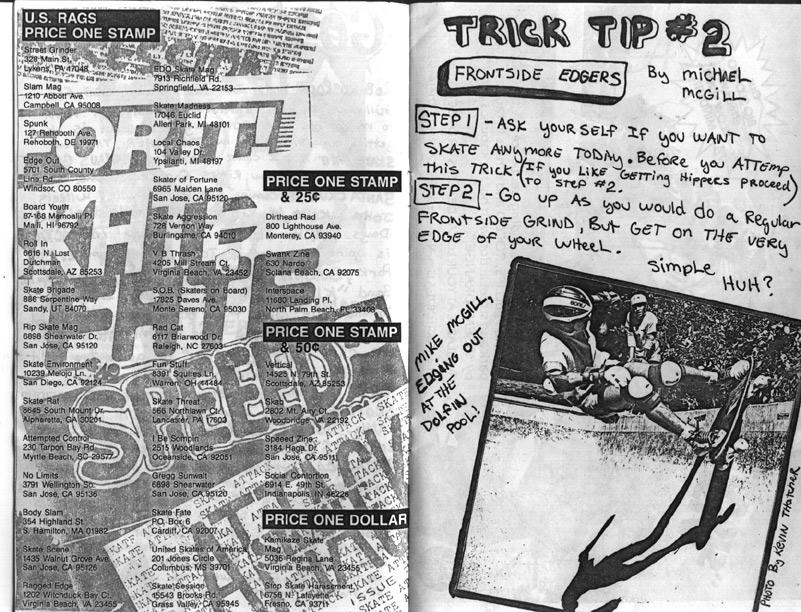 U.S. RAGS
PRICE ONE STAMP
Street Grinder
328 Main St.
Lykens, PA 17048
Slam Mag
1210 Abbott Ave.
Campbell, CA 95008
Spunk
127 Rehoboth Ave.
Rehoboth, DE 19971
Edge Out
5701 South County
Line Rd.
Windsor, CO 80550
Board Youth
87-168 Memoalii Pl.
Maili, HI 96792
Roll In
6616 N. Lost
Dutchman
Scottsdale, AZ 85253
Skate Brigade
886 Serpentine Way
Sandy, UT 84070
Rip Skate Mag
6898 Shearwater Dr.
San Jose, CA 95120
Skate Environment
10239 Melojo Ln.
San Diego, CA 92124
Skate Rat
8645 South Mount Dr.
Alpharetta, GA 30201
Attempted Control
230 Tarpon Bay Rd.
Myttle Beach, SC 29577
No Limits
3791 Wellington Sq.
San Jose, CA 95136
Body Slam
354 Highland St.
S. Hamilton, MA 01982
Skate Scene
1435 Walnut Grove Ave.
San Jose, CA 95126
Ragged Edge
1202 Witchduck Bay Ct.
Virginia Beach, VA 23455
EDO Skate Mag
7913 Richfield Rd.
Springfield, VA 22153
Skate Madness
17046 Euclid
Allen Park, MI 48101
Local Chaos
104 Valley Dr.
Ypsilanti, MI 48197
Skater of Fortune
6965 Maiden Lane
San Jose, CA 95120
Skate Aggression
728 Vernon Way
Burlingame, CA 94010
V B Thrash
4205 Mill Stream Ct.
Virginia Beach, VA 23452
S.O.B. (Skaters on Board)
17825 Daves Ave.
Monte Sereno, CA 95030
Rad Cat
6117 Briarwood Dr.
Raleigh, NC 27603
Fun Stuff
8391 Squires Ln.
Warren, OH 44484
Skate Threat
566 Northlawn Ctr.
Lancaster, PA 17603
I Be Sompin
2515 Woodlands
Oceanside, CA 92051
Gregg Sunwalt
6898 Shearwater
San Jose, CA 95120
Skate Fate
P.O. Box 6
Cardiff, CA 92007
United Skates of America
201 Jones Circle
Columbus, MS 39701
Skate Session
15543 Brooks Rd.
Grass Valley, CA 95945
PRICE ONE STAMP
& 25¢
Dirthead Rad
800 Lighthouse Ave.
Monterey, CA 93940
Swank Zine
630 Nardo
Solana Beach, CA 92075
Interspace
11680 Landing Pl.
North Palm Beach, FL 33408
PRICE ONE STAMP
& 50¢
Vertical
14525 N. 79th St.
Scottsdale, AZ 85253
Skab
2802 Mt. Airy Ct.
Woodbridge, VA 22192
Speeed Zine
3184 Haga Dr.
San Jose, CA 95111
Social Contortion
6914 E. 49th St.
Indianapolis, IN 46226
PRICE ONE DOLLAR
Kamikaze Skate
Mag
5036 Regina Lane
Virginia Beach, VA 23455
Stop Skate Harassment
6756 N. Lafayette
Fresno, CA 93711
SPEED
ISSUE
TRICK TIP #2
FRONTSIDE EDGERS
By MICHAEL
McGILL
STEP 1 - ASK YOURSELF IF YOU WANT TO
SKATE ANYMORE TODAY. BEFORE YOU ATTEMP
THIS TRICK. (IF YOU LIKE GETTING HIPPERS PROCEED
TO STEP #2.)
STEP 2 - GO UP AS YOU WOULD DO A REGULAR
FRONTSIDE GRIND, BUT GET ON THE VERY
EDGE OF YOUR WHEEL.
SIMPLE
HUH?
MIKE McGILL,
EDGING OUT
AT THE
DOLFIN
POOL!
PHOTO By KEVIN THATCHER